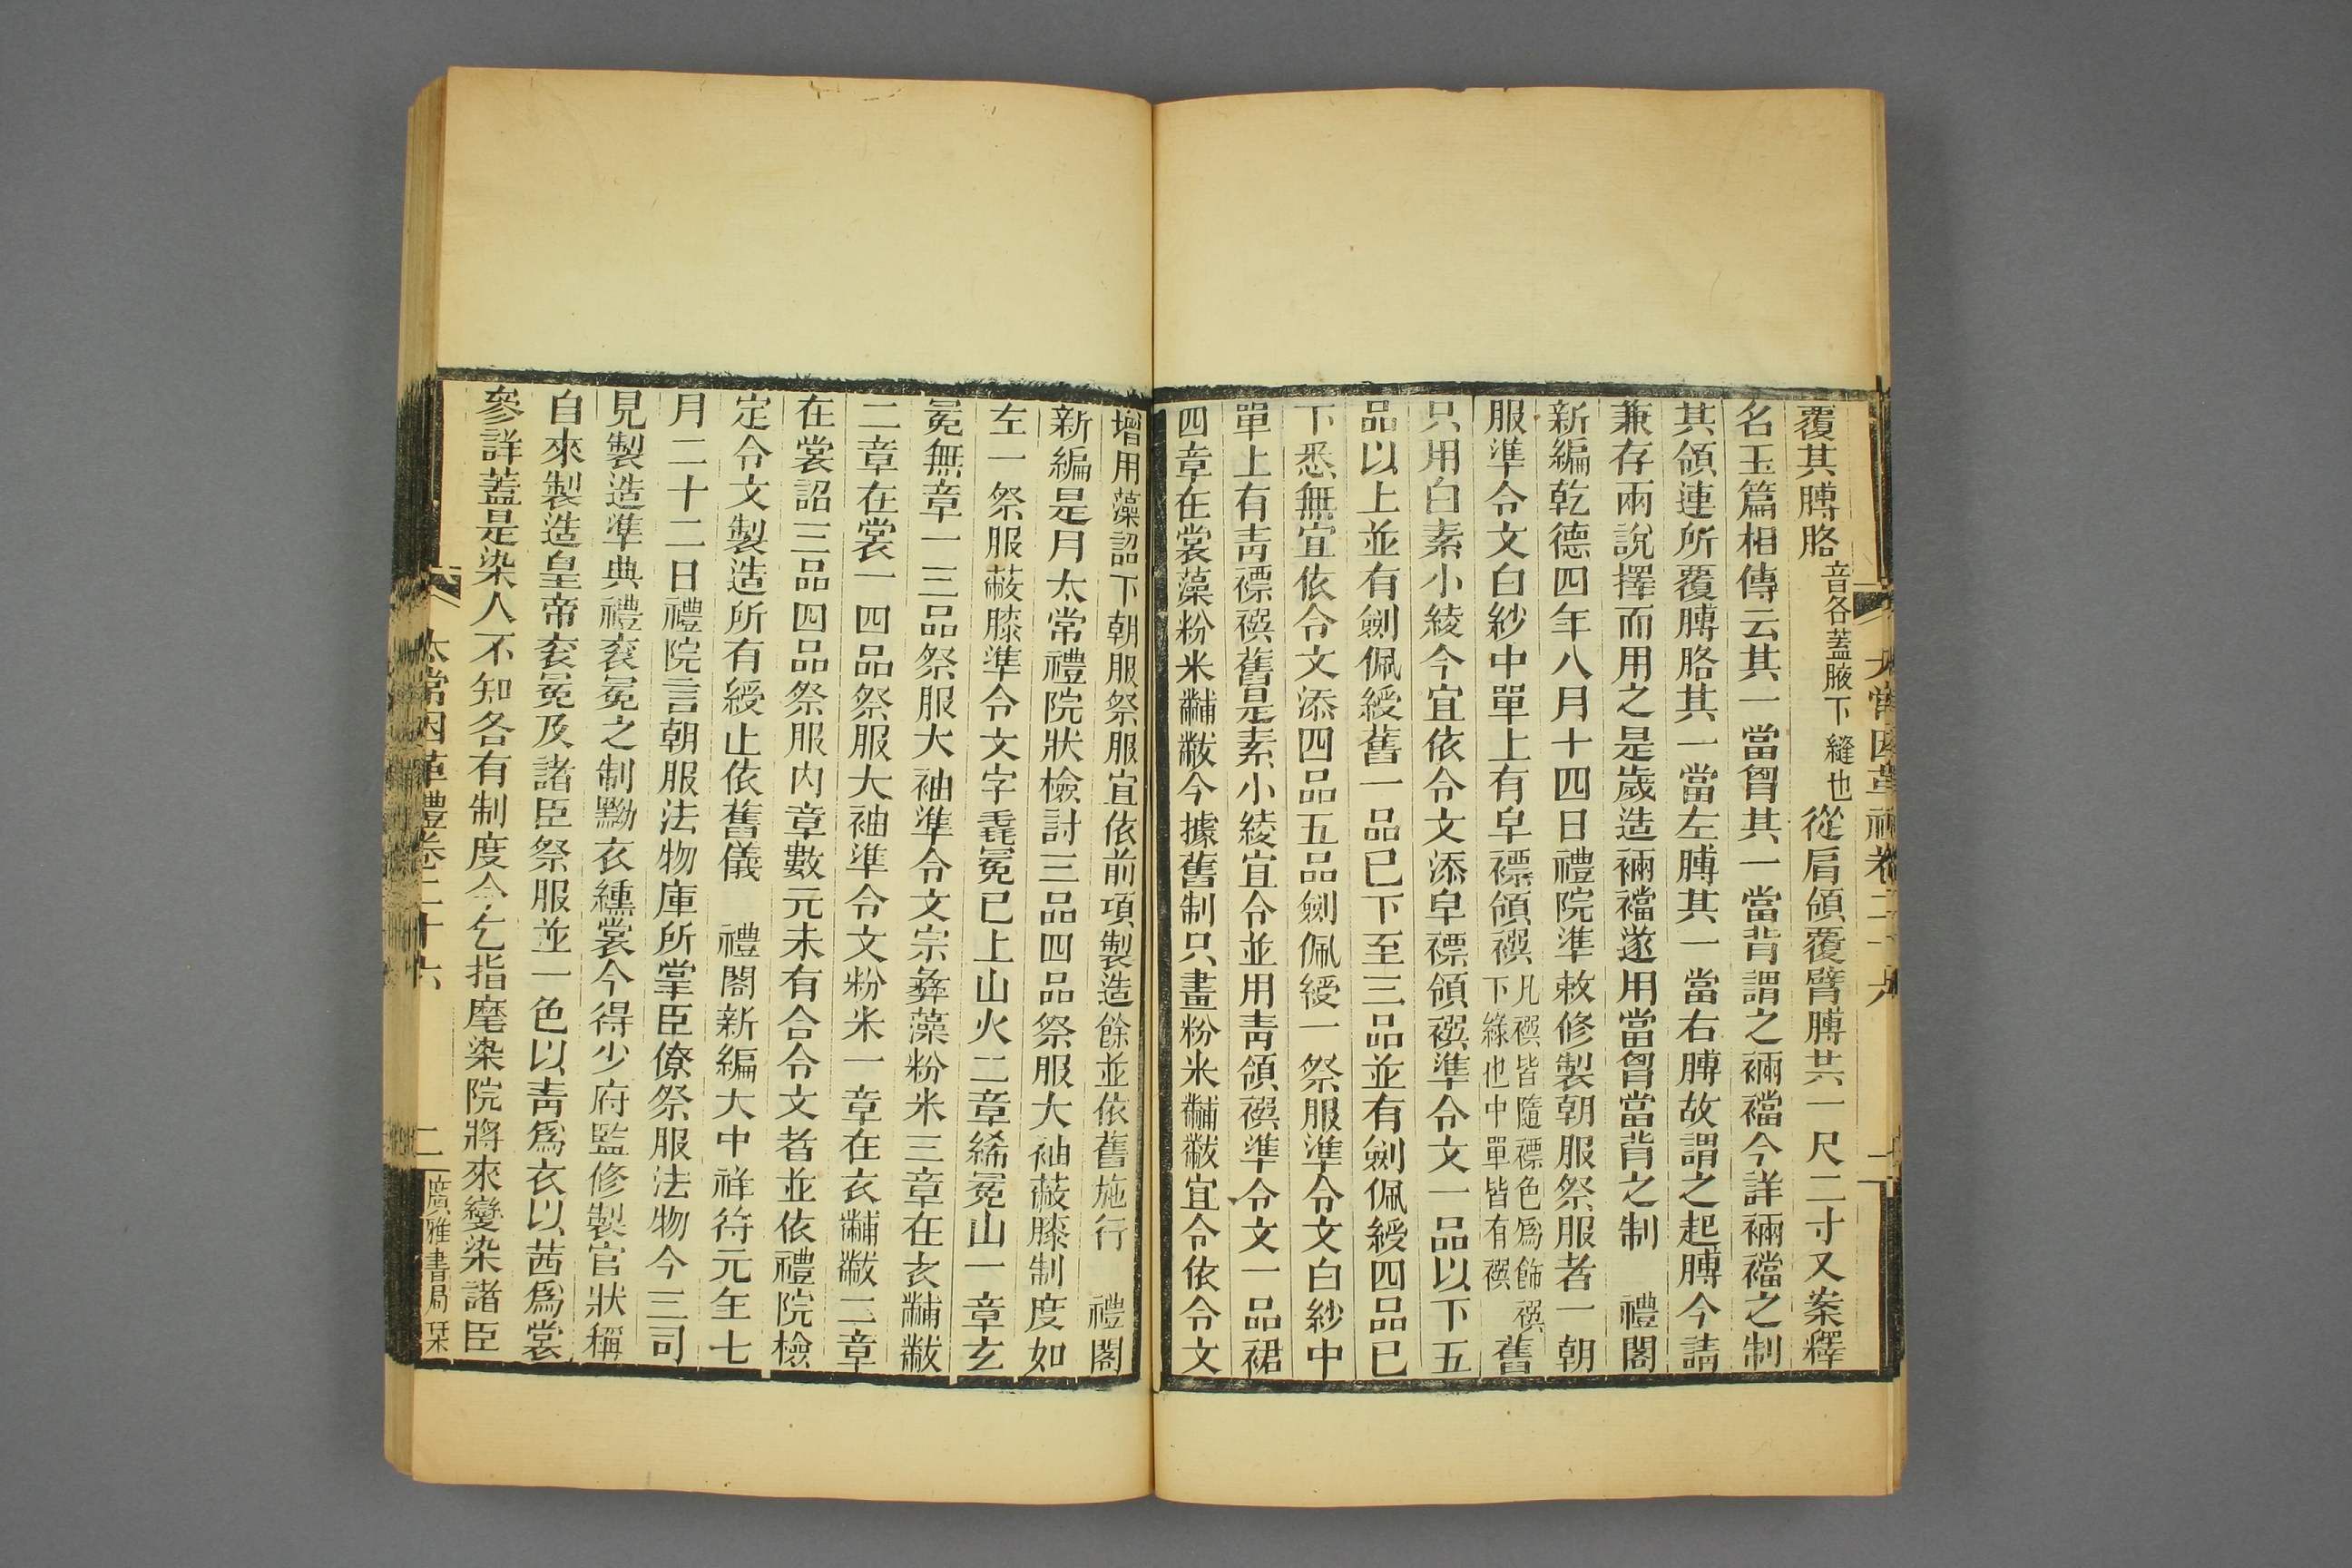 覆其膊胳音各蓋腋下縫也從肩領覆臂膊共一尺二寸又案釋
名玉篇相傳云其一當胷其一當背謂之裲襠今詳裲襠之制
其領連所覆膊胳其一當左膊其一當右膊故謂之起膊今請
兼存兩說擇而用之是歲造裲襠遂用當胷當背之制　禮閣
新編乾德四年八月十四日禮院準敕修製朝服祭服者一朝
服準令文白紗中單上有皁褾領襈凡襈皆隨褾色爲飾襈下緣也中單皆有襈舊
只用白素小綾今宜依令文添皁褾領襈準令文一品以下五
品以上並有劍佩綬舊一品已下至三品並有劍佩綬四品已
下悉無宜依令文添四品五品劍佩綬一祭服準令文白紗中
單上有青褾襈舊是素小綾宜令並用青領襈準令文一品裙
四章在裳藻粉米黼黻今據舊制只畫粉米黼黻宜令依令文
增用藻詔下朝服祭服宜依前項製造餘並依舊施行　禮閣
新編是月太常禮院狀檢討三品四品祭服大袖蔽膝制度如
左一祭服蔽膝準令文字毳冕已上山火二章絺冕山一章玄
冕無章一三品祭服大袖準令文宗彝藻粉米三章在衣黼黻
二章在裳一四品祭服大袖準令文粉米一章在衣黼黻二章
在裳詔三品四品祭服內章數元未有合令文者並依禮院檢
定令文製造所有綬止依舊儀　禮閣新編大中祥符元年七
月二十二日禮院言朝服法物庫所掌臣僚祭服法物今三司
見製造準典禮袞冕之制黝衣纁裳今得少府監修製官狀稱
自來製造皇帝袞冕及諸臣祭服並一色以青爲衣以茜爲裳
參詳蓋是染人不知各有制度今乞指麾染院將來變染諸臣
太常因革禮卷二十六　二　廣雅書局栞